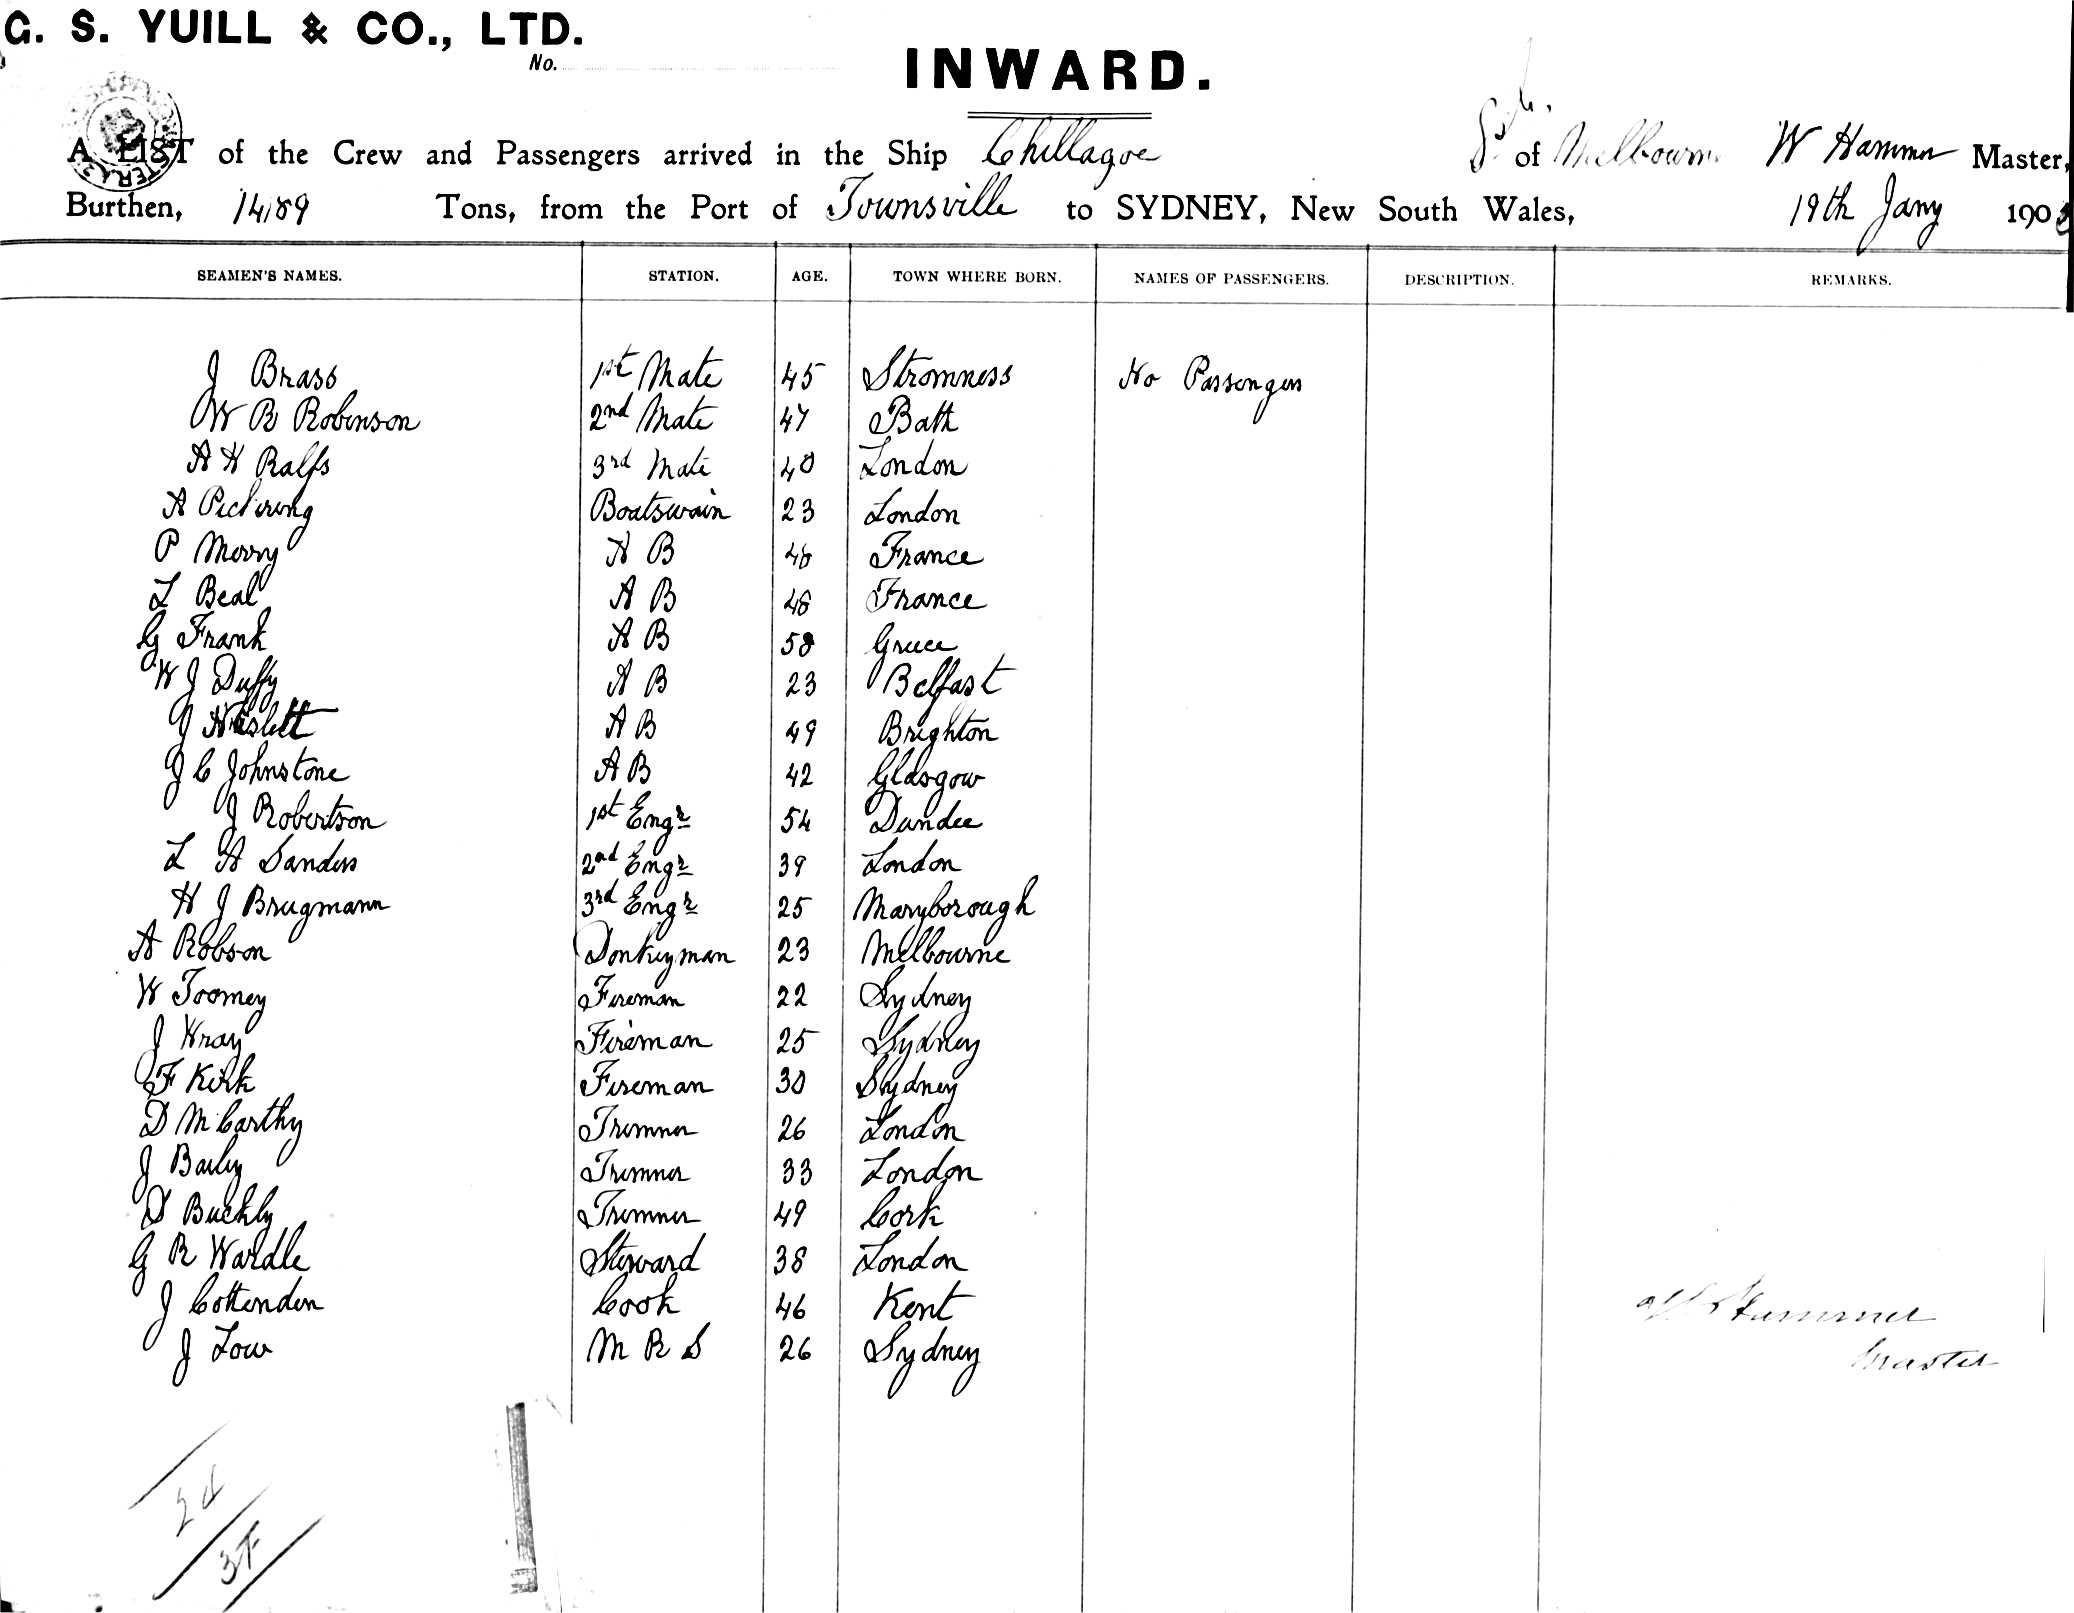 G. S. YUILL & CO., LTD.
No.
INWARD.
A LIST of the Crew and Passengers arrived in the Ship Chillagoe of Melbourne W Hammer Master,
Burthen, 1489 Tons, from the Port of Townsville to SYDNEY, New South Wales, 19th Jany 190
SEAMEN'S NAMES. STATION. AGE. TOWN WHERE BORN. NAMES OF PASSENGERS. DESCRIPTION. REMARKS.
J Brass 1st Mate 45 Stromness No Passengers
W B Robinson 2nd Mate 47 Bath
A H Ralfs 3rd Mate 40 London
A Pickering Boatswain 23 London
P Morry A B 48 France
L Beal A B 48 France
G Frank A B 58 Greece
W J Duffy A B 23 Belfast
J Heslett A B 49 Brighton
J C Johnstone A B 42 Glasgow
J Robertson 1st Engr 54 Dundee
L A Sanders 2nd Engr 39 London
H J Brugmann 3rd Engr 25 Maryborough
A Robson Donkeyman 23 Melbourne
W Toomey Fireman 22 Sydney
J Wray Fireman 25 Sydney
F Kirk Fireman 30 Sydney
D McCarthy Trimmer 26 London
J Bailey Trimmer 33 London
D Buckly Trimmer 49 Cork
G R Wardle Steward 38 London
J Cottenden Cook 46 Kent
J Low M R S 26 Sydney
Hammer
Master